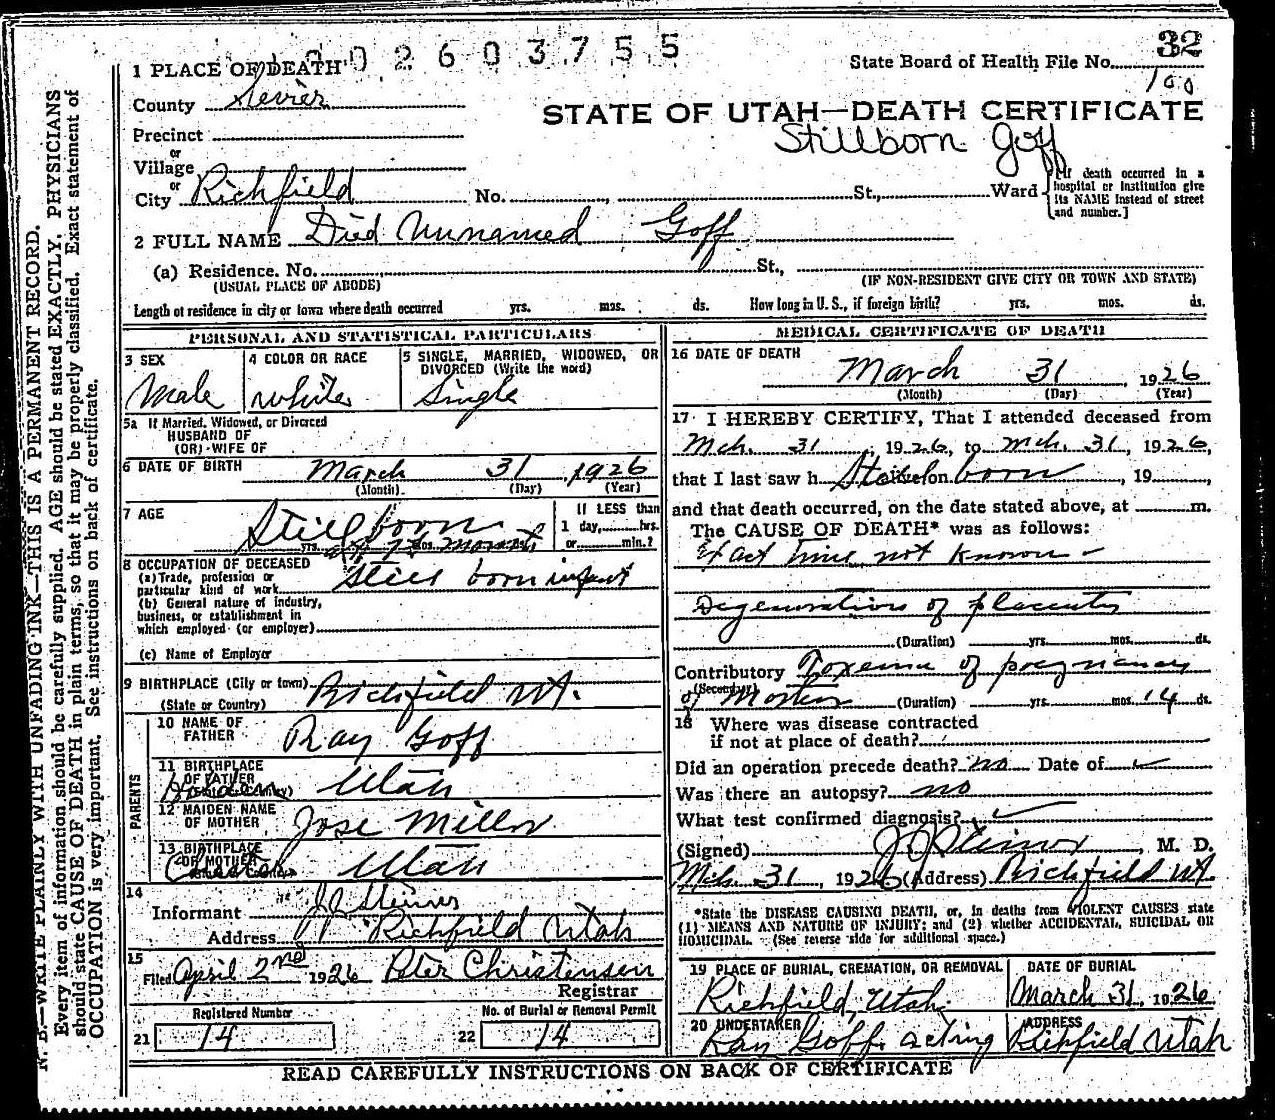 1002603755
32
State Board of Health File No.
100
1 PLACE OF DEATH
County Sevier
STATE OF UTAH—DEATH CERTIFICATE
Stillborn Goff
Precinct
or
Village
or
City Richfield No. , St., Ward
[If death occurred in a hospital or institution give its NAME instead of street and number.]
2 FULL NAME Died Unnamed Goff
(a) Residence. No. St.,
(USUAL PLACE OF ABODE) (IF NON-RESIDENT GIVE CITY OR TOWN AND STATE)
Length of residence in city or town where death occurred yrs. mos. ds. How long in U. S., if foreign birth? yrs. mos. ds.
PERSONAL AND STATISTICAL PARTICULARS
3 SEX
Male
4 COLOR OR RACE
White
5 SINGLE, MARRIED, WIDOWED, OR DIVORCED (Write the word)
Single
5a If Married, Widowed, or Divorced
HUSBAND OF
(OR) WIFE OF
6 DATE OF BIRTH March 31, 1926
(Month) (Day) (Year)
7 AGE
Still born
yrs. mos.
If LESS than
1 day, hrs.
or min.?
8 OCCUPATION OF DECEASED
(a) Trade, profession or
particular kind of work Still born infant
(b) General nature of industry,
business, or establishment in
which employed (or employer)
(c) Name of Employer
9 BIRTHPLACE (City or town) Richfield Ut.
(State or Country)
PARENTS
10 NAME OF FATHER Ray Goff
11 BIRTHPLACE OF FATHER Utah
12 MAIDEN NAME OF MOTHER Jose Miller
13 BIRTHPLACE OF MOTHER Utah
14
Informant J J Steiner
Address Richfield Utah
15
Filed April 2nd 1926 Peter Christensen
Registrar
Registered Number
21 14
No. of Burial or Removal Permit
22 14
MEDICAL CERTIFICATE OF DEATH
16 DATE OF DEATH
March 31, 1926
(Month) (Day) (Year)
17 I HEREBY CERTIFY, That I attended deceased from
Mch. 31, 1926, to Mch. 31, 1926,
that I last saw h born, 19 ,
and that death occurred, on the date stated above, at m.
The CAUSE OF DEATH* was as follows:
Exact time not known
Degeneration of placenta
(Duration) yrs. mos. ds.
Contributory Toxemia of pregnancy
(Secondary) of Mother (Duration) yrs. mos. 14 ds.
18 Where was disease contracted
if not at place of death?
Did an operation precede death? no Date of
Was there an autopsy? no
What test confirmed diagnosis?
(Signed) J J Steiner, M. D.
Mch. 31, 1926 (Address) Richfield Ut.
*State the DISEASE CAUSING DEATH, or, in deaths from VIOLENT CAUSES state
(1) MEANS AND NATURE OF INJURY; and (2) whether ACCIDENTAL, SUICIDAL OR
HOMICIDAL. (See reverse side for additional space.)
19 PLACE OF BURIAL, CREMATION, OR REMOVAL
Richfield, Utah
DATE OF BURIAL
March 31, 1926
20 UNDERTAKER
Ray Goff. acting
ADDRESS
Richfield Utah
READ CAREFULLY INSTRUCTIONS ON BACK OF CERTIFICATE
N. B.—WRITE PLAINLY WITH UNFADING INK—THIS IS A PERMANENT RECORD.
Every item of information should be carefully supplied. AGE should be stated EXACTLY. PHYSICIANS
should state CAUSE OF DEATH in plain terms, so that it may be properly classified. Exact statement of
OCCUPATION is very important. See instructions on back of certificate.